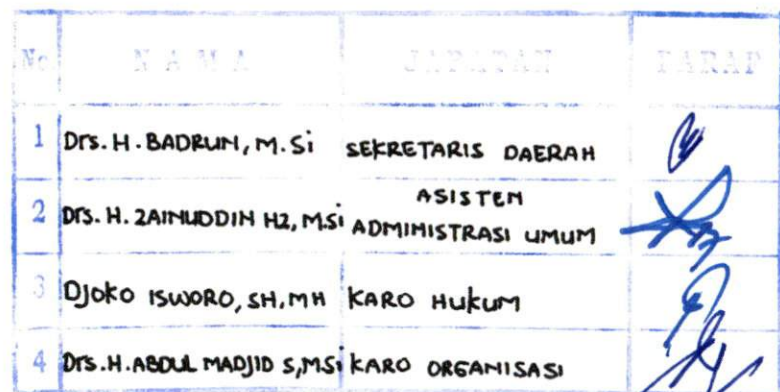 No NAMA JABATAN PARAF
1 Drs. H. BADRUN, M.Si SEKRETARIS DAERAH
2 Drs. H. ZAINUDDIN HZ, M.Si ASISTEN
ADMINISTRASI UMUM
3 DJOKO ISWORO, SH, MH KARO HUKUM
4 Drs. H. ABDUL MADJID S, MSi KARO ORGANISASI